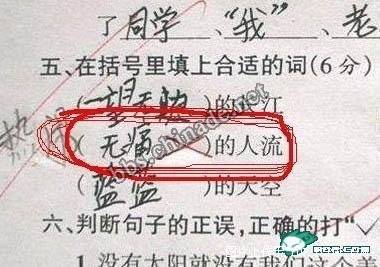 了同学、“我”、老
五、在括号里填上合适的词(6分)
(一望无际)的
(无痛)的人流
(蓝蓝)的天空
六、判断句子的正误，正确的打“√
1. 没有太阳就没有我们这个美
bbs.chinade.net